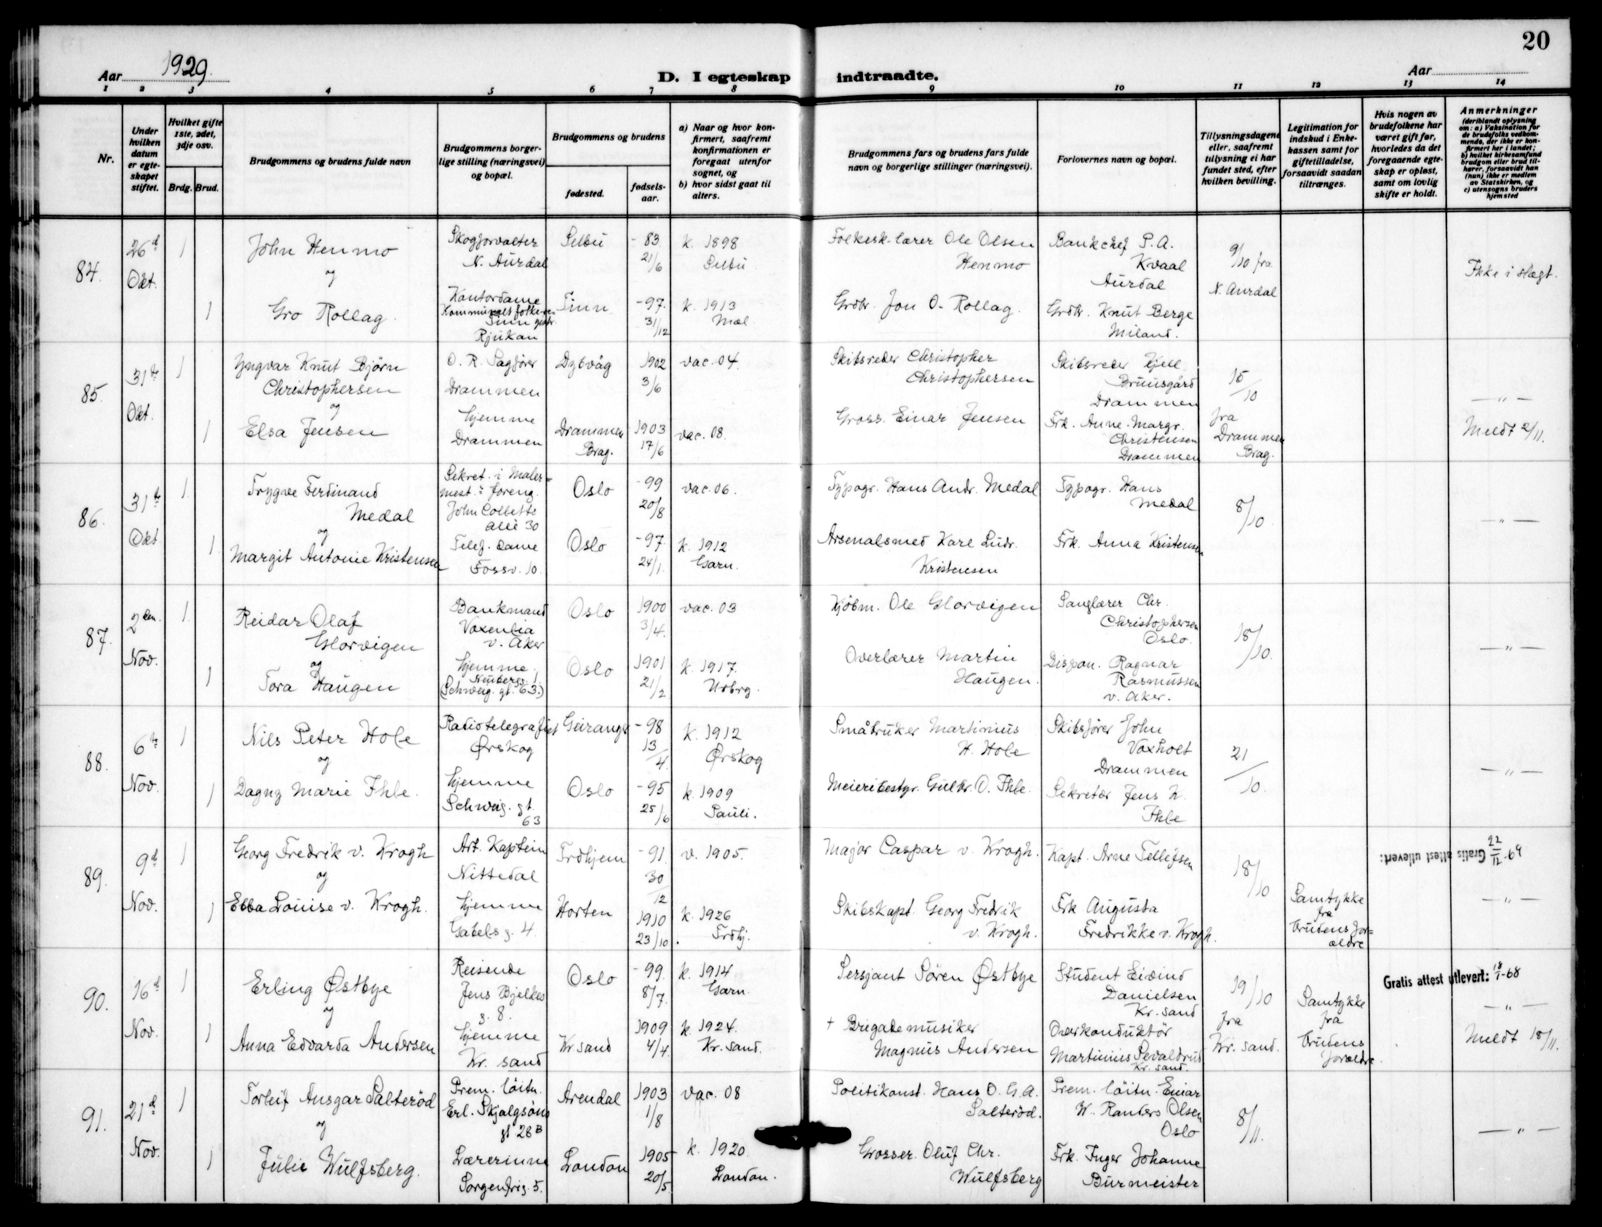 20
Aar 1929.
D. I egteskap indtraadte.
Aar
1 2 3 4 5 6 7 8 9 10 11 12 13 14
Nr.
Under hvilken datum er egteskapet stiftet.
Hvilket gifte 1ste, 2det, 3dje osv.
Brdg. Brud.
Brudgommens og brudens fulde navn
Brudgommens borgerlige stilling (næringsvei) og bopæl.
Brudgommens og brudens
fødested.
fødselsaar.
a) Naar og hvor konfirmert, saafremt konfirmationen er foregaat utenfor sognet, og
b) hvor sidst gaat til alters.
Brudgommens fars og brudens fars fulde navn og borgerlige stillinger (næringsvei).
Forlovernes navn og bopæl.
Tillysningsdagene eller, saafremt tillysning ei har fundet sted, efter hvilken bevilling.
Legitimation for indskud i Enkekassen samt for giftetilladelse, forsaavidt saadan tiltrænges.
Hvis nogen av brudefolkene har været gift før, hvorledes da det foregaaende egteskap er opløst, samt om lovlig skifte er holdt.
Anmerkninger
84. 26d Okt.
1 John Henmo
Skogforvalter N. Aurdal
Selbu
- 83 21/6
k. 1898 Selbu
Folkesk. lærer Ole Olsen Henmo
Bankchef P. A. Kvaal Aurdal
9/10 fra N. Aurdal
Ikke i slegt.
og
1 Gro Rollag.
Kontordame Tinn Rjukan
Tinn
- 97 31/12
k. 1913 Mæl
Grdbr. Jon O. Rollag.
Grdbr. Knut Berge Miland.
85. 31te Okt.
1 Yngvar Knut Bjørn Christophersen
O. R. Sagfører Drammen
Dybvåg
1902 3/6
vac. 04
Skibsreder Christopher Christophersen
Skibsreder Kjell Bruusgård Drammen
15/10 fra Drammen Brag.
- " -
og
1 Elsa Jensen
hjemme Drammen
Drammen Brag.
1903 17/6
vac. 08.
Gross. Einar Jensen
Frk. Anne-Margr. Christensen Drammen
Meldt 2/11.
86. 31te Okt
1 Trygve Ferdinand Medal
Sekret. i Malermest.s foreng. John Colletts allé 30
Oslo
- 99 20/8
vac. 06.
Typogr. Hans Andr. Medal
Typogr. Hans Medal
8/10.
- " -
og
1 Margit Antonie Kristensen
Telef. dame Fossv. 10.
Oslo
- 97 24/1.
k. 1912 Garn.
Arsenalsmed Kare Ludv. Kristensen
Frk. Anna Kristensen
87. 2den Nov.
1 Reidar Olaf Glorvigen
Bankmand Voxenlia v. Aker
Oslo
1900 3/4.
vac. 03
Kjøbm. Ole Glorvigen
Sanglærer Chr. Christophersen Oslo.
18/10.
- " -
og
1 Tora Haugen
hjemme. (Schweig. gt. 63.)
Oslo
1901 21/2
k. 1917. Urbrg.
Overlærer Martin Haugen.
Dispon. Ragnar Rasmussen v. Aker.
88. 6te Nov.
1 Nils Peter Hole
Radiotelegrafist Ørskog
Geiranger
- 98 13/4
k. 1912 Ørskog
Småbruker Martinius H. Hole
Skibsfører John Voxholt Drammen
21/10.
- " -
og
1 Dagny Marie Ihle.
hjemme Schweig. gt. 63
Oslo
- 95 25/6
k. 1909 Pauli.
Meieribestyr. Gulbr. O. Ihle.
Sekretær Jens H. Ihle
89. 9d Nov.
1 Georg Fredrik v. Krogh
Art. Kaptein Nittedal
Trdhjem
- 91. 30/12
v. 1905.
Major Caspar v. Krogh.
Kapt. Arne Tellefsen
18/10
Gratis attest utlevert: 22/12-69
- " -
og
1 Ebba Louise v. Krogh.
hjemme Gabels g. 4
Horten
1910 23/10.
k. 1926 Trdhj.
Skibskapt. Georg Fredrik v. Krogh.
Frk Augusta Fredrikke v. Krogh.
Samtykke fra brudens forældre
90. 16d Nov.
1 Erling Østbye
Reisende Jens Bjelkes g. 8.
Oslo
- 99. 8/7.
k. 1914 Garn.
Sersjant Søren Østbye
Student Eivind Danielsen Kr. sand
19/10 fra Kr. sand.
Gratis attest utlevert: 18/1-68
- " -
og
1 Anna Edvarda Andersen
hjemme Kr. sand
Kr sand
1909 4/4.
k. 1924. Kr. sand.
+ Brigademusiker Magnus Andersen
Overkonduktør Martinius Sevaldrud Kr. sand.
Samtykke fra brudens forældre.
Meldt 18/11.
91. 21d Nov.
1 Torleif Ansgar Salterød
Prem. løitn. Erl. Skjalgsøns gt 28B
Arendal
1903 1/8
vac. 08
Politikonst. Hans O. G. A. Salterød.
Prem. løitn. Einar W. Randers Olsen Oslo
8/11.
- " -
og
1 Julie Wulfsberg.
Lærerinne Sorgenfrig. 5.
London
1905 20/5
k. 1920. London.
Grosser. Oluf Chr. Wulfsberg
Frk. Inger Johanne Burmeister